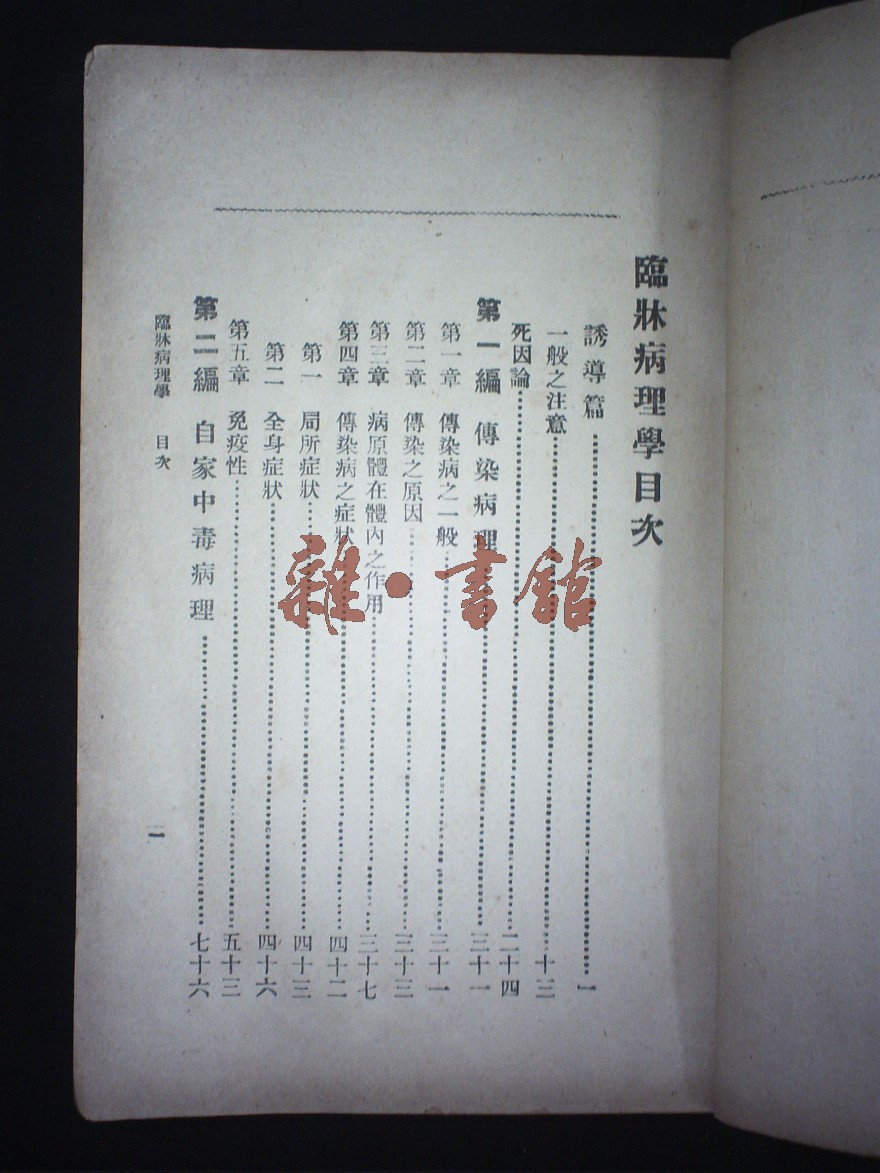 臨牀病理學目次
誘導篇 一
一般之注意 十三
死因論 二十四
第一編 傳染病理 三十一
第一章 傳染病之一般 三十一
第二章 傳染之原因 三十三
第三章 病原體在體內之作用 三十七
第四章 傳染病之症狀 四十二
第一 局所症狀 四十三
第二 全身症狀 四十六
第五章 免疫性 五十三
第二編 自家中毒病理 七十六
臨牀病理學 目次 一
雜·書館